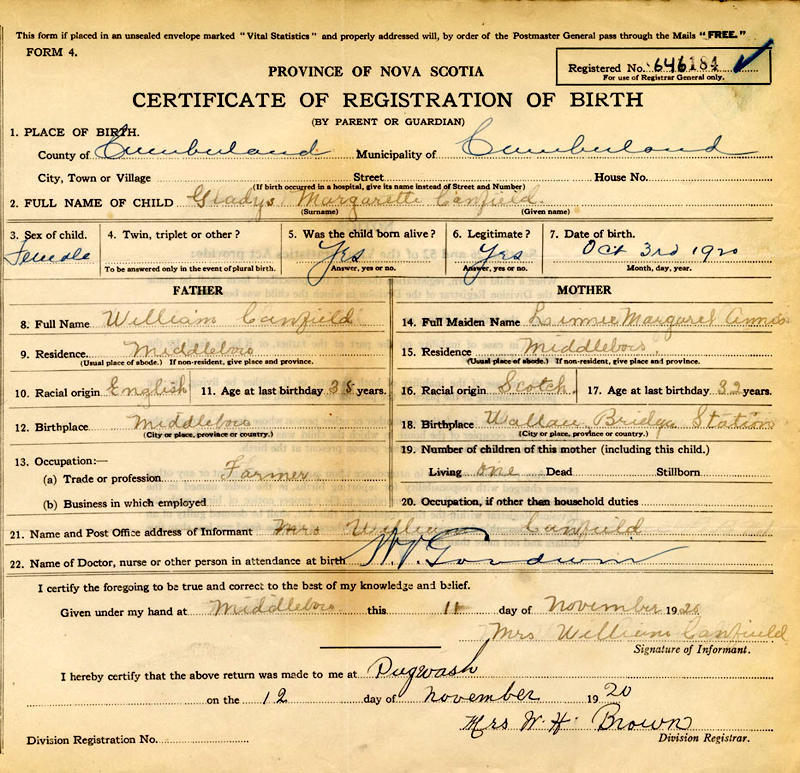 This form if placed in an unsealed envelope marked "Vital Statistics" and properly addressed will, by order of the Postmaster General pass through the Mails "FREE."
FORM 4.
Registered No. 646184
For use of Registrar General only.
PROVINCE OF NOVA SCOTIA
CERTIFICATE OF REGISTRATION OF BIRTH
(BY PARENT OR GUARDIAN)
1. PLACE OF BIRTH.
County of Cumberland Municipality of Cumberland
City, Town or Village Street House No.
(If birth occurred in a hospital, give its name instead of Street and Number)
2. FULL NAME OF CHILD Gladys Margarette Canfield.
(Surname) (Given name)
3. Sex of child. 4. Twin, triplet or other ? 5. Was the child born alive? 6. Legitimate ? 7. Date of birth.
Female Yes Yes Oct 3rd 1920
To be answered only in the event of plural birth. Answer, yes or no. Answer, yes or no. Month, day, year.
FATHER MOTHER
8. Full Name William Canfield 14. Full Maiden Name Margaret
9. Residence Middleboro 15. Residence Middleboro
(Usual place of abode.) If non-resident, give place and province. (Usual place of abode.) If non-resident, give place and province.
10. Racial origin English 11. Age at last birthday 38 years. 16. Racial origin Scotch 17. Age at last birthday 32 years.
12. Birthplace Middleboro 18. Birthplace Wallace Bridge Station
(City or place, province or country.) (City or place, province or country.)
13. Occupation:— 19. Number of children of this mother (including this child.)
(a) Trade or profession Farmer Living one Dead Stillborn
(b) Business in which employed 20. Occupation, if other than household duties
21. Name and Post Office address of Informant Mrs William Canfield
22. Name of Doctor, nurse or other person in attendance at birth Goodwin
I certify the foregoing to be true and correct to the best of my knowledge and belief.
Given under my hand at Middleboro this 11 day of November 1920
Mrs William Canfield
Signature of Informant.
I hereby certify that the above return was made to me at Pugwash
on the 12 day of November 1920
Mrs W. H. Brown
Division Registration No. Division Registrar.